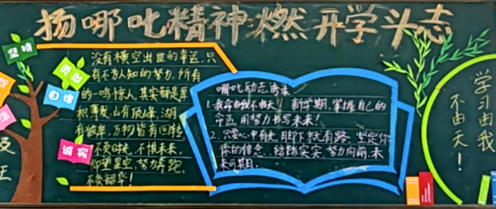 扬哪吒精神燃开学斗志
坚持
勇敢
自理
诚实
没有横空出世的幸运,只
有不为人知的努力,所有
的一鸣惊人,其实都是厚
积薄发。山有顶峰,湖
有彼岸,万物皆有回转
不畏将来,不惧未来,
仰望星空,努力奔跑,
不负韶华!
哪吒励志语录
1.我命由我不由天!新学期,掌握自己的
命运,用努力书写未来!
2.只要心中有光,脚下就有路,坚定你
的信念,踏踏实实,努力向前,未
来可期。
学习由我
不由天!